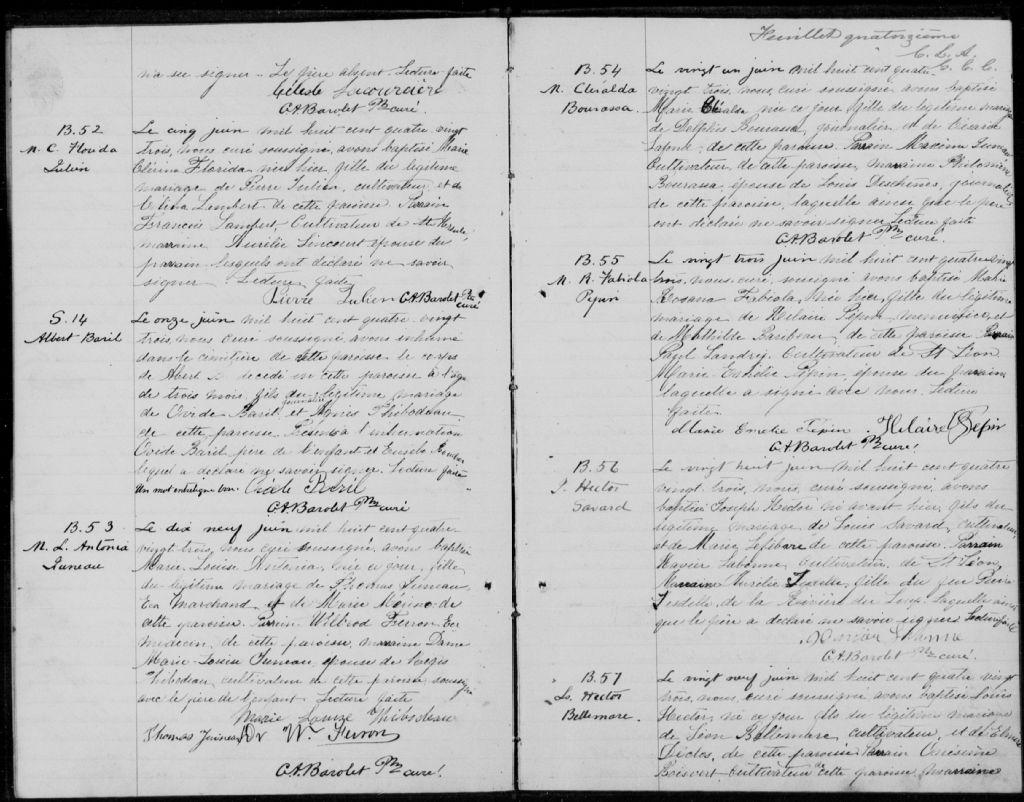 na su signer. Le père absent. Lecture faite
C. A. Barolet Ptre curé
B. 52
M. C. Florida
Julien
Le cinq juin mil huit cent quatre vingt
trois, nous curé soussigné, avons baptisé Marie
Florida, née hier, fille du légitime
mariage de Pierre Julien, cultivateur, et de
Lembert de cette paroisse. Parrain
François Lampert, Cultivateur de
marraine, Aurélie Sincourt épouse du
parrain lesquels ont déclaré ne savoir
signer. Lecture faite
Pierre Julien C. A. Barolet Ptre curé
S. 14
Albert Baril
Le onze juin mil huit cent quatre vingt
trois, nous curé soussigné, avons inhumé
dans le cimetière de cette paroisse le corps
de Abert décédé en cette paroisse à l'age
de trois mois, fils du légitime mariage
de Ovide Baril, journalier et Agnès Thibodeau
de cette paroisse. Présents à l'inhumation
Ovide Baril, père de l'enfant et Eusèbe
lequel a déclaré ne savoir signer. Lecture faite
Un mot entreligne bon. Ovide Baril
C. A. Barolet Ptre curé
B. 53
M. L. Antonia
Juneau
Le dix neuf juin mil huit cent quatre
vingt trois, nous curé soussigné, avons baptisé
Marie Louise Antonia, née ce jour, fille
du légitime mariage de Thomas Juneau,
Ecr Marchand et de Marie de
cette paroisse. Parrain Wilbrod Ferron Ecr
médecin, de cette paroisse, marraine Dame
Marie-Louise Juneau, épouse de
Thibodeau, cultivateur de cette paroisse soussignés
avec le père de l'enfant. Lecture faite
Marie Louise Thibodeau
Thomas Juineau Dr W. Ferron
C. A. Barolet Ptre curé!
Feuillet quatorzième
C. L. A.
C. C. C.
B. 54
M. Cléralda
Bourassa
Le vingt un juin mil huit cent quatre
vingt trois, nous curé soussigné avons baptisé
Marie née ce jour, fille du légitime mariage
de Dolphis Bourassa, journalier et de
de cette paroisse. Parrain Maxime Juneau
Cultivateur de cette paroisse, marraine Philomène
Bourassa, épouse de Louis Deschênes, journalier
de cette paroisse, laquelle ainsi que le père
ont déclaré ne savoir signer. Lecture faite
C. A. Barolet Ptre curé.
B. 55
M. R. Fabiola
Pepin
Le vingt trois juin mil huit cent quatre vingt
trois, nous, curé, soussigné avons baptisé Marie
Rosana Fabiola, née hier, fille du légitime
mariage de Hilaire Pepin, menuisier, et
de Mathilde Baribeau, de cette paroisse. Parrain
Landry, Cultivateur de St Léon
Marie Emélie Pépin, épouse du parrain
laquelle a signé avec nous. Lecture
faite.
Marie Emelie Pepin. Hilaire Pepin
C. A. Barolet Ptre curé!
B. 56
J. Hector
Savard
Le vingt huit juin mil huit cent quatre
vingt trois, nous, curé soussigné, avons
baptisé Joseph Hector né avant hier, fils du
légitime mariage, de Louis Savard, cultivateur,
et de Marie Lefebvre de cette paroisse. Parrain
Xavier Labonne, cultivateur, de St Léon
Marraine Aurélie Tesdelle, fille du feu Pierre
Tesdelle, de la Rivière du Loup, laquelle ainsi
que le père a déclaré ne savoir signer. Lecture faite
C. A. Barolet Ptre curé.
B. 57
Ls. Hector
Bellemare.
Le vingt neuf juin mil huit cent quatre vingt
trois, nous, curé soussigné avons baptisé Louis
Hector, né ce jour, fils du légitime mariage
de Léon Bellemare, cultivateur, et de
de cette paroisse. Parrain Onésime
Boisvert, cultivateur de cette paroisse, marraine